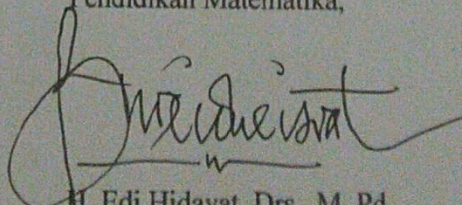 Pendidikan Matematika,
H. Edi Hidayat, Drs., M. Pd.